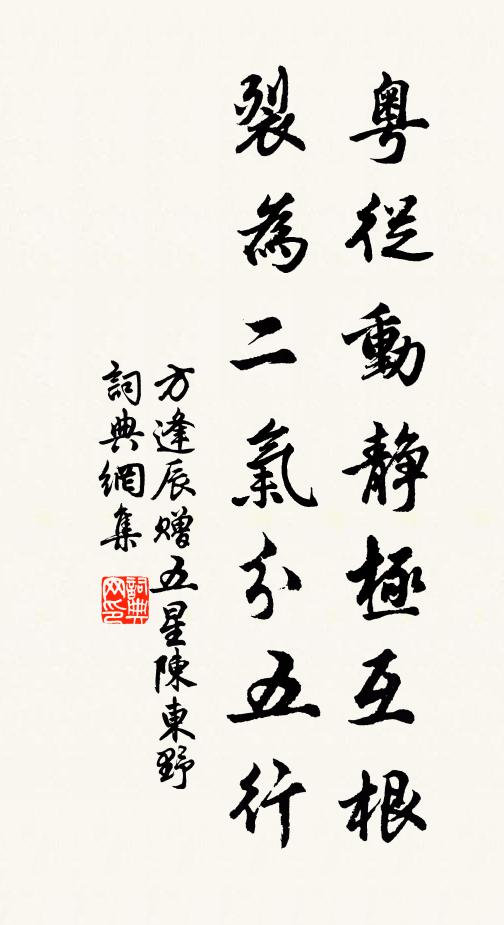 粤從動静極互根
裂為二氣分五行
方逢辰贈五星陳東野
詞典網集
詞典网印